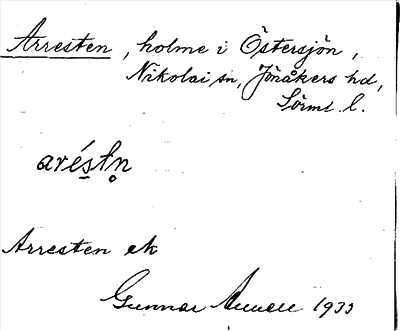 Arresten, holme i Östersjön,
Nikolai sn, Jönåkers hd,
Sörml. l.
aréstn̥
Arresten ek
Gunnar 1933